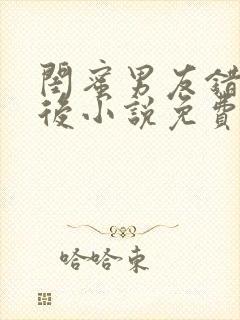 閨蜜男友錯
後小說免費
哈哈東